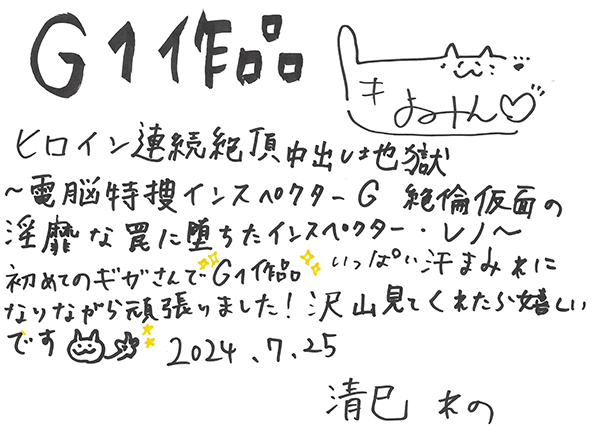 G1作品
キよみん♡
ヒロイン連続絶頂中出し地獄
～電脳特捜インスペクターG 絶倫仮面の
淫靡な罠に堕ちたインスペクター・レノ～
初めてのギガさんでG1作品 いっぱい汗まみれに
なりながら頑張りました!沢山見てくれたら嬉しい
です 2024.7.25
清巳 れの